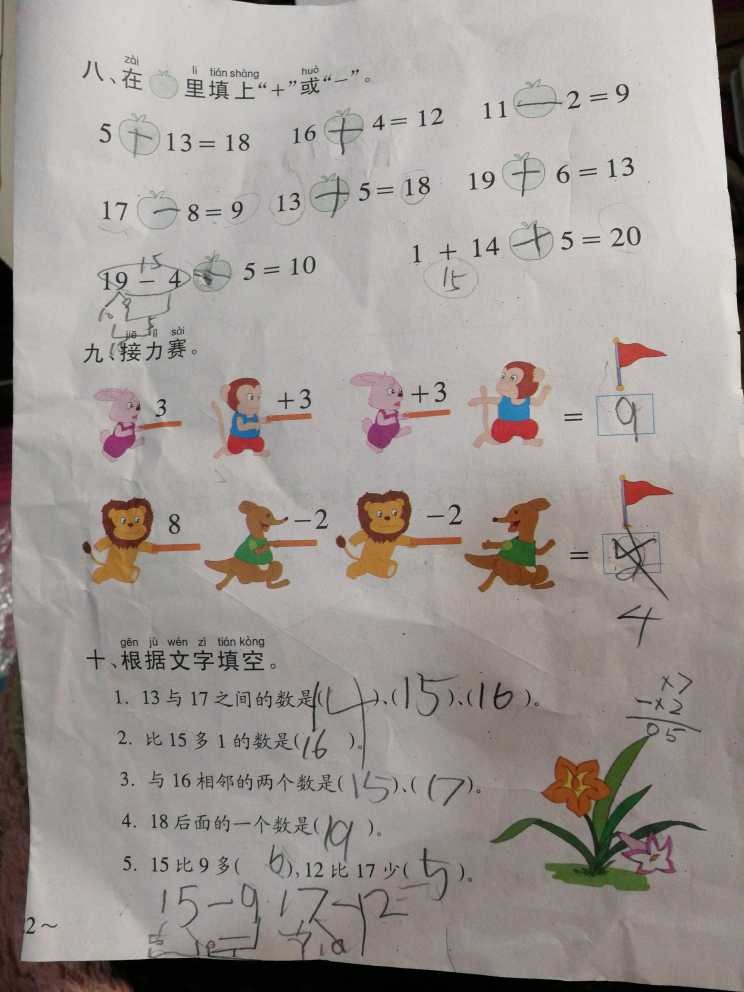 zài lǐ tián shàng huò
八、在 里填上“+”或“－”。
5 + 13 = 18 16 + 4 = 12 11 － 2 = 9
17 － 8 = 9 13 + 5 = 18 19 + 6 = 13
15
19 － 4 5 = 10 1 + 14 + 5 = 20
15
jiē lì sài
九、接力赛。
3 +3 +3 = 9
8 －2 －2 =
4
gēn jù wén zì tián kòng
十、根据文字填空。
1. 13与17之间的数是(14)、(15)、(16)。
2. 比15多1的数是(16)。
3. 与16相邻的两个数是(15)、(17)。
4. 18后面的一个数是(19)。
5. 15比9多(6),12比17少(5)。
×7
－×2
05
15－9 17－12=5
2～